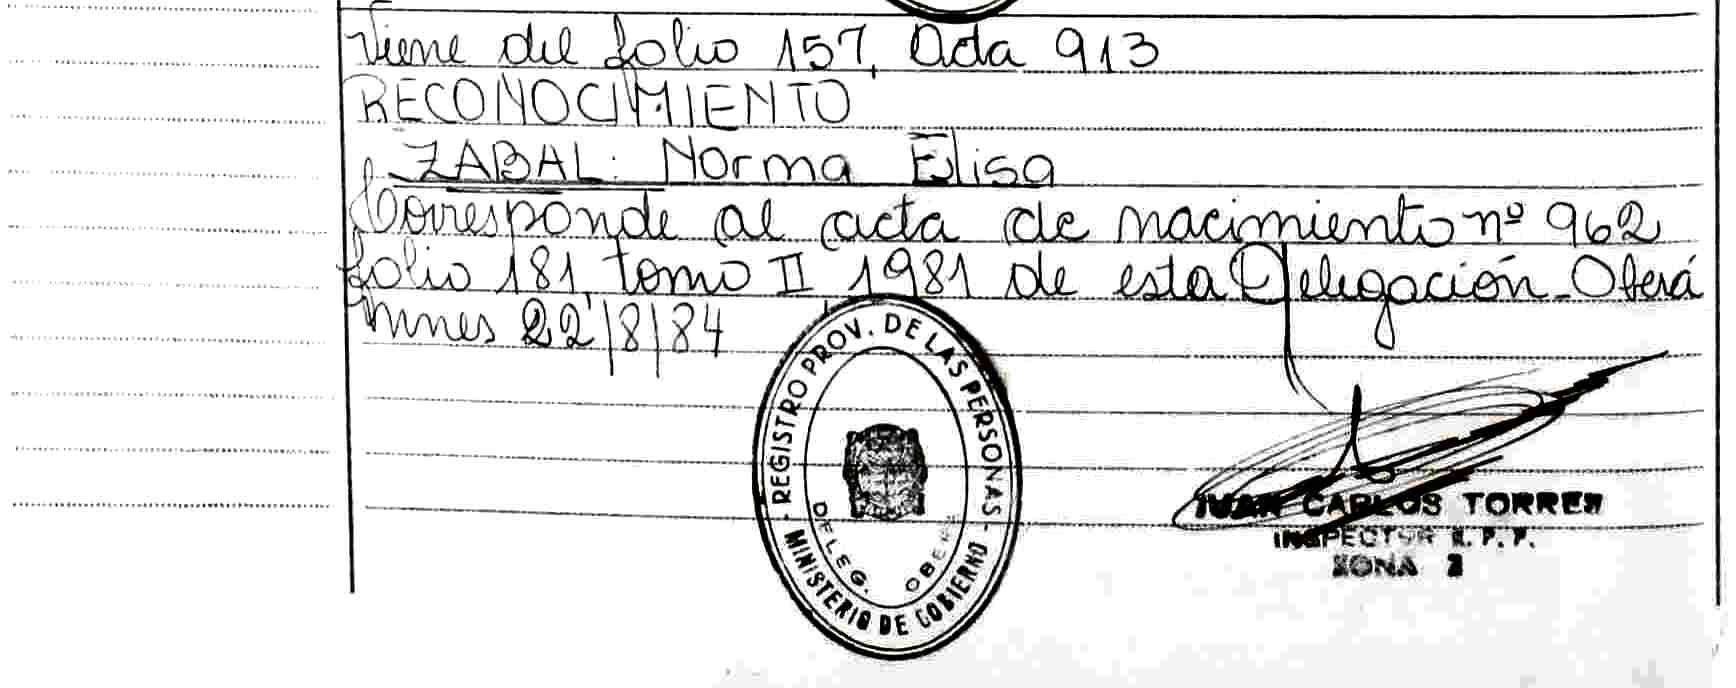 Viene del folio 157, Acta 913
RECONOCIMIENTO
ZABAL: Norma Elisa
Corresponde al acta de nacimiento nº 962
folio 181, tomo II 1981 de esta Delegación - Oberá
Mnes 22/8/84
- REGISTRO PROV. DE LAS PERSONAS -
MINISTERIO DE GOBIERNO
DELEG. OBERA
JUAN CARLOS TORRES
INSPECTOR R. P. P.
ZONA 2